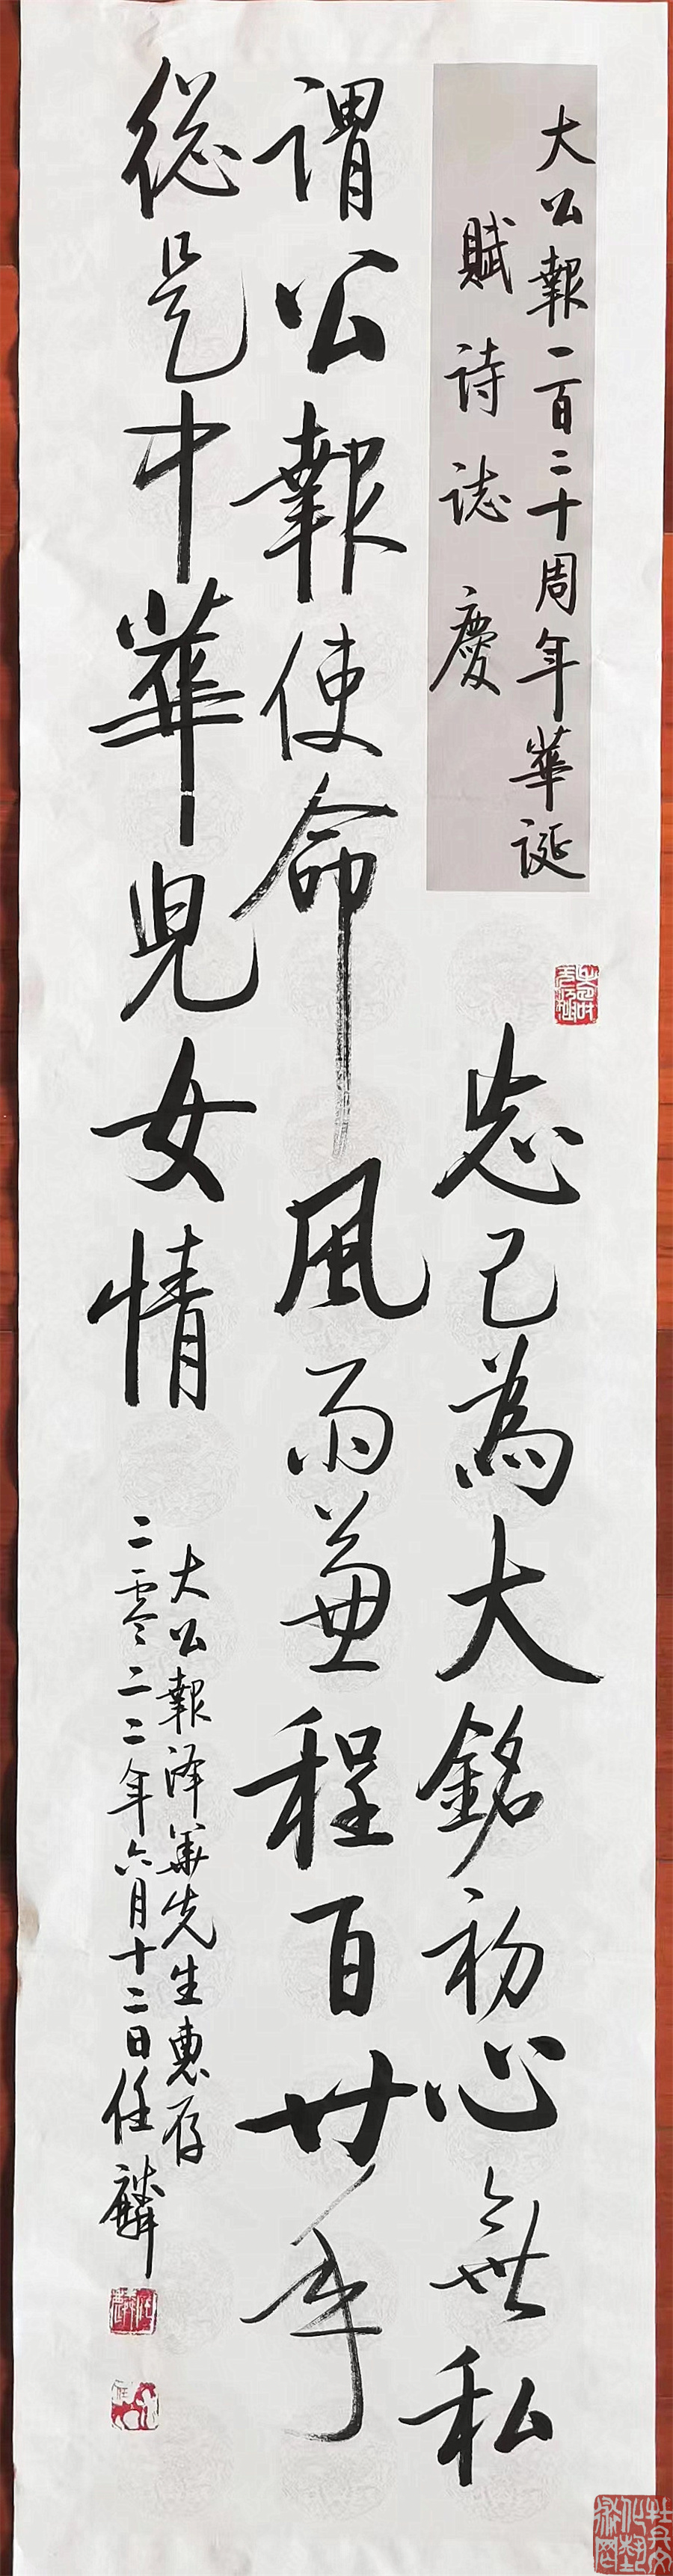 大公報一百二十周年華誕
賦詩誌慶
忘己為大銘初心無私
謂公報使命風雨兼程百廿年
總是中華兒女情
大公報泽華先生惠存
二零二二年六月十二日任麟